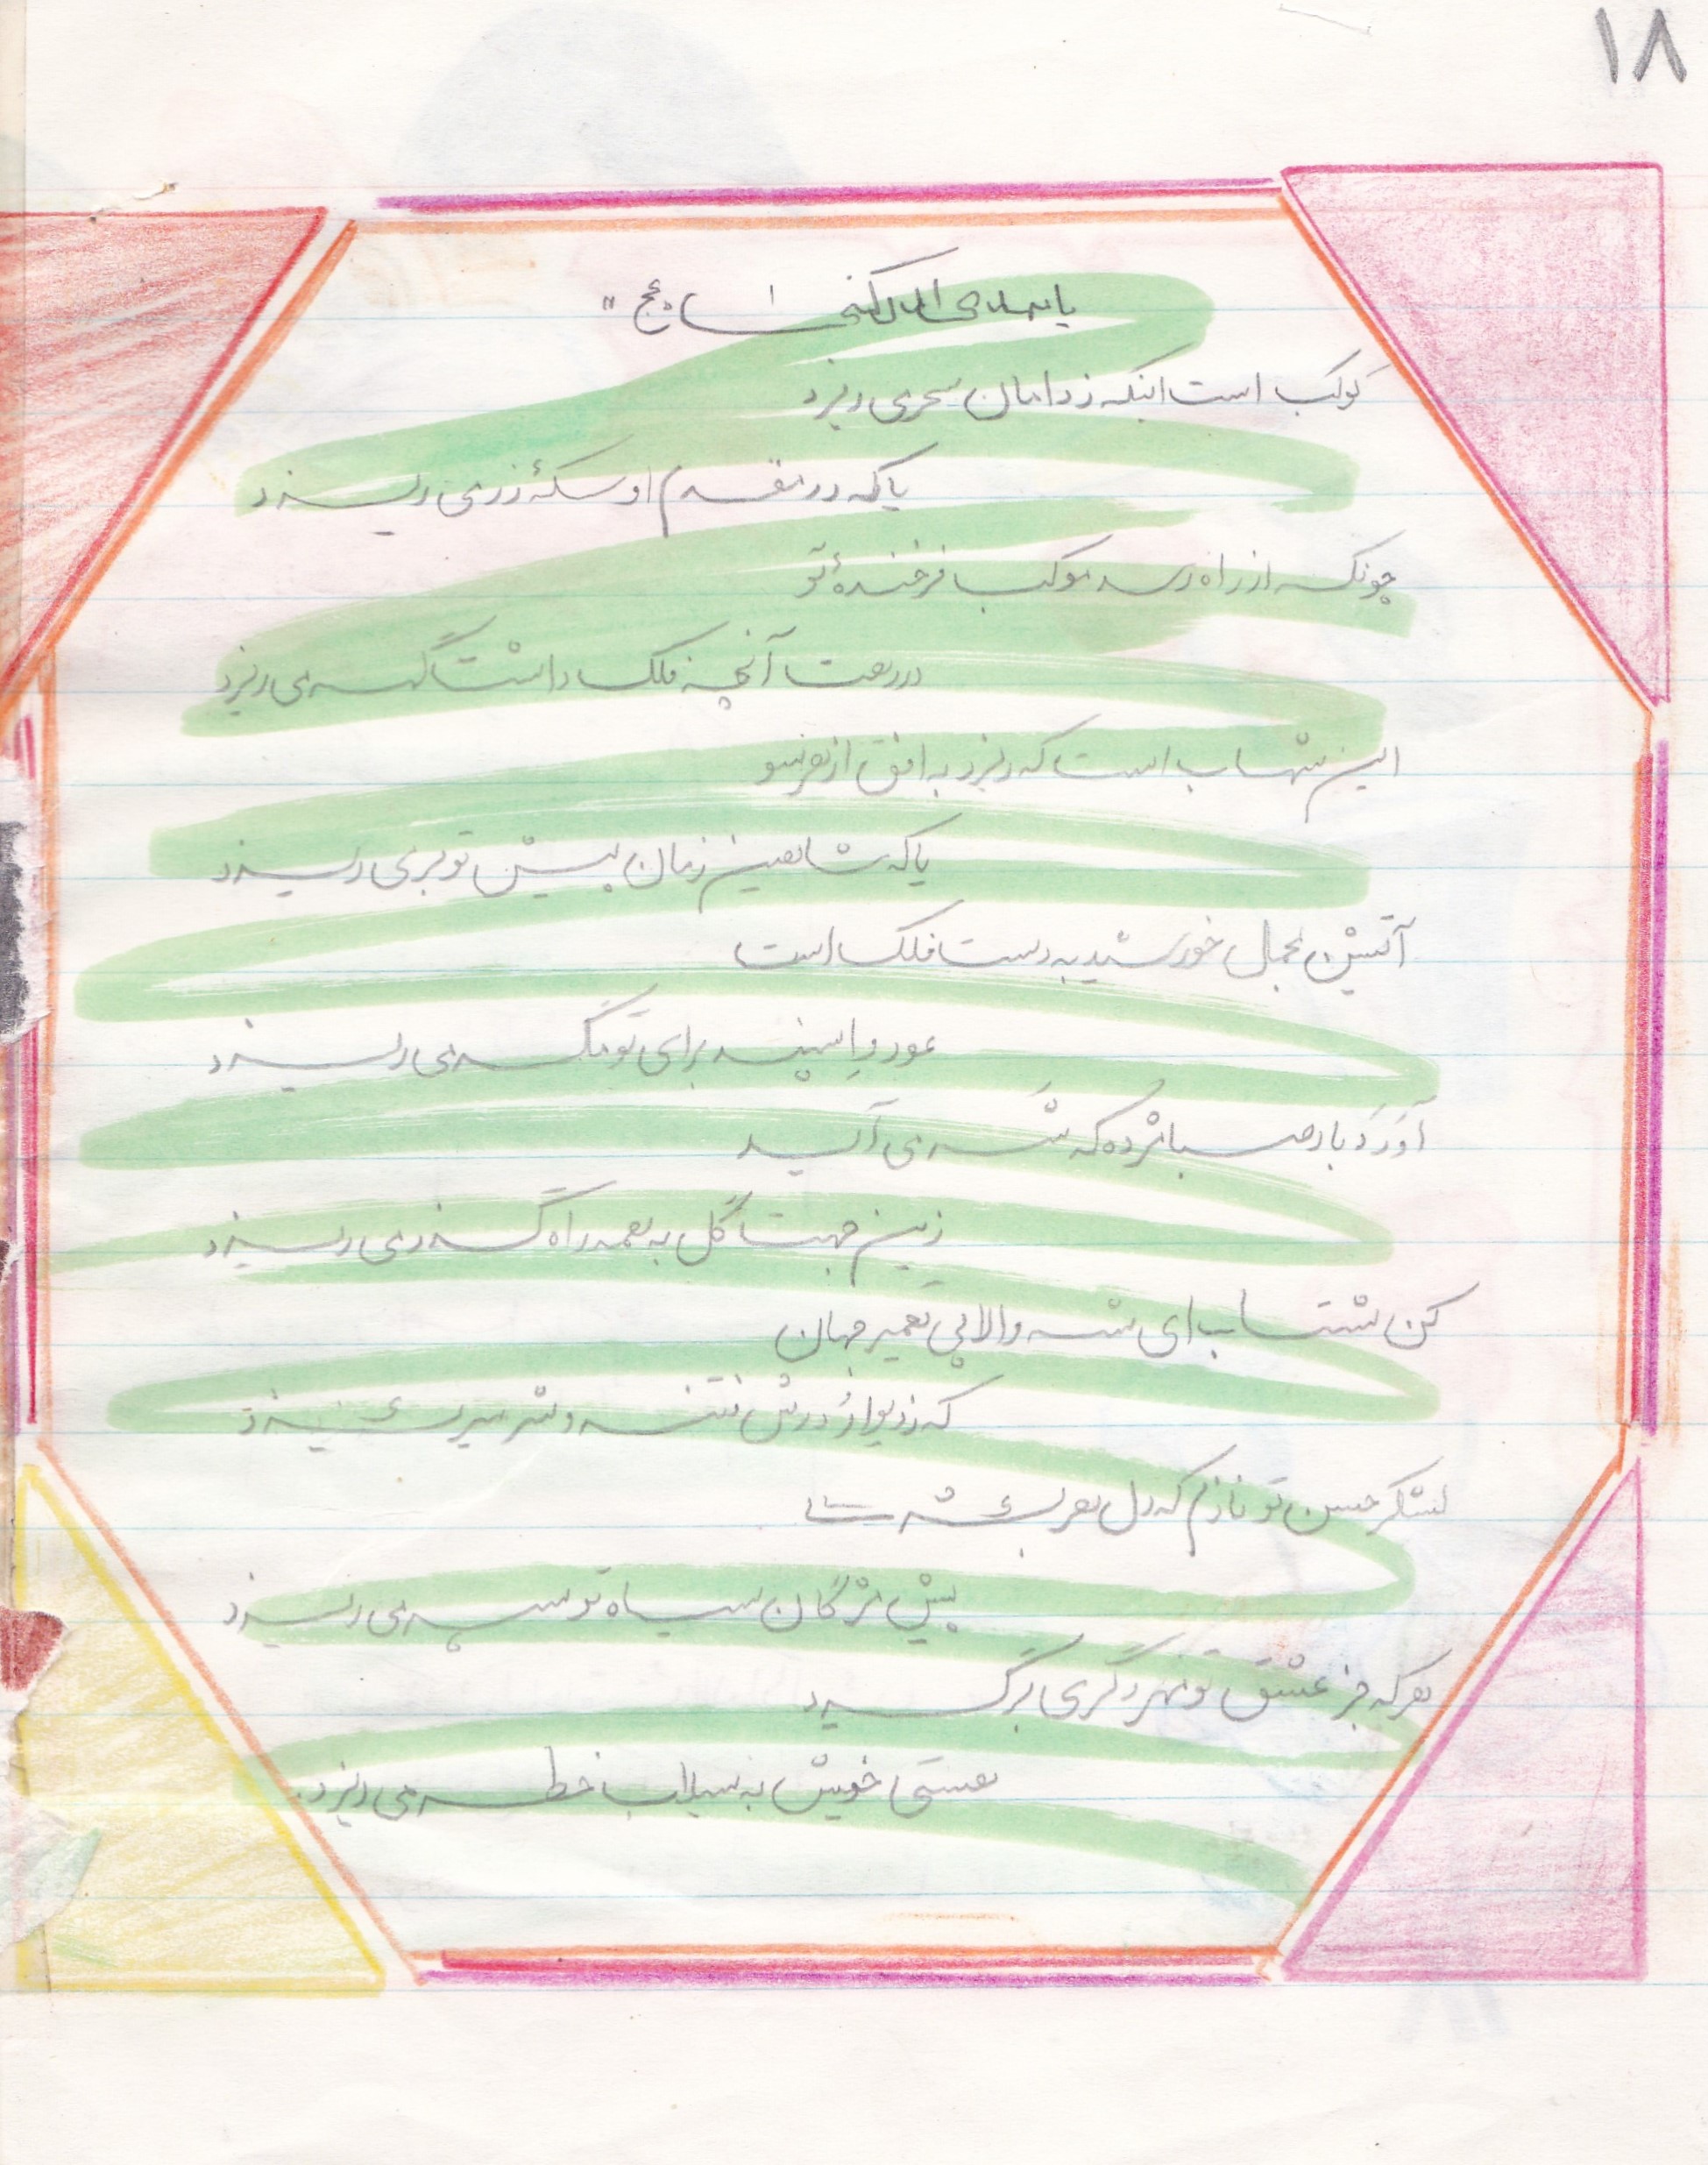 ۱۸
یا مهدی ادرکنی عج"
کوکب است اینکه ز دامان سحر می ریزد
یا که در مقدم او سکهٔ زر می ریزد
چونکه از راه رسد موکب فرخندهٔ تو
در رهت آنچه فلک داشت گهر می ریزد
این شهاب است که ریزد به افق از هر سو
یا که شاهین زمان پیش تو پر می ریزد
آتشین مجمل خورشید به دست فلک است
عود و اسپند برای تو مگر می ریزد
آوَرَد باد صبا مژده که شه می آید
زین جهت گل به همه راه گذر می ریزد
کن شتاب ای شه والا پی تعمیر جهان
که ز دیوار و درش فتنه و شر میریزد
لشکر حسن تو نازم که دل هر
پیش مژگان سیاه تو سپر می ریزد
هر که جز عشق تو مهر دگری برگیرد
هستی خویش به سیلاب خطر می ریزد.